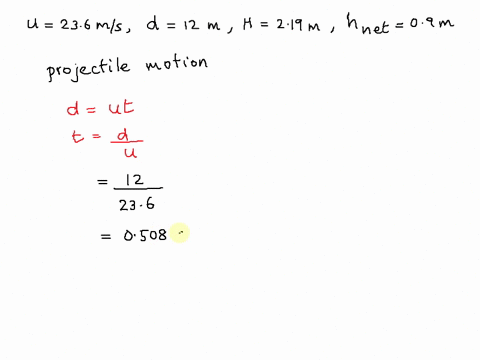 u = 23.6 m/s, d = 12 m, H = 2.19 m, h net = 0.9 m
projectile motion
d = ut
t = d/u
= 12/23.6
= 0.508